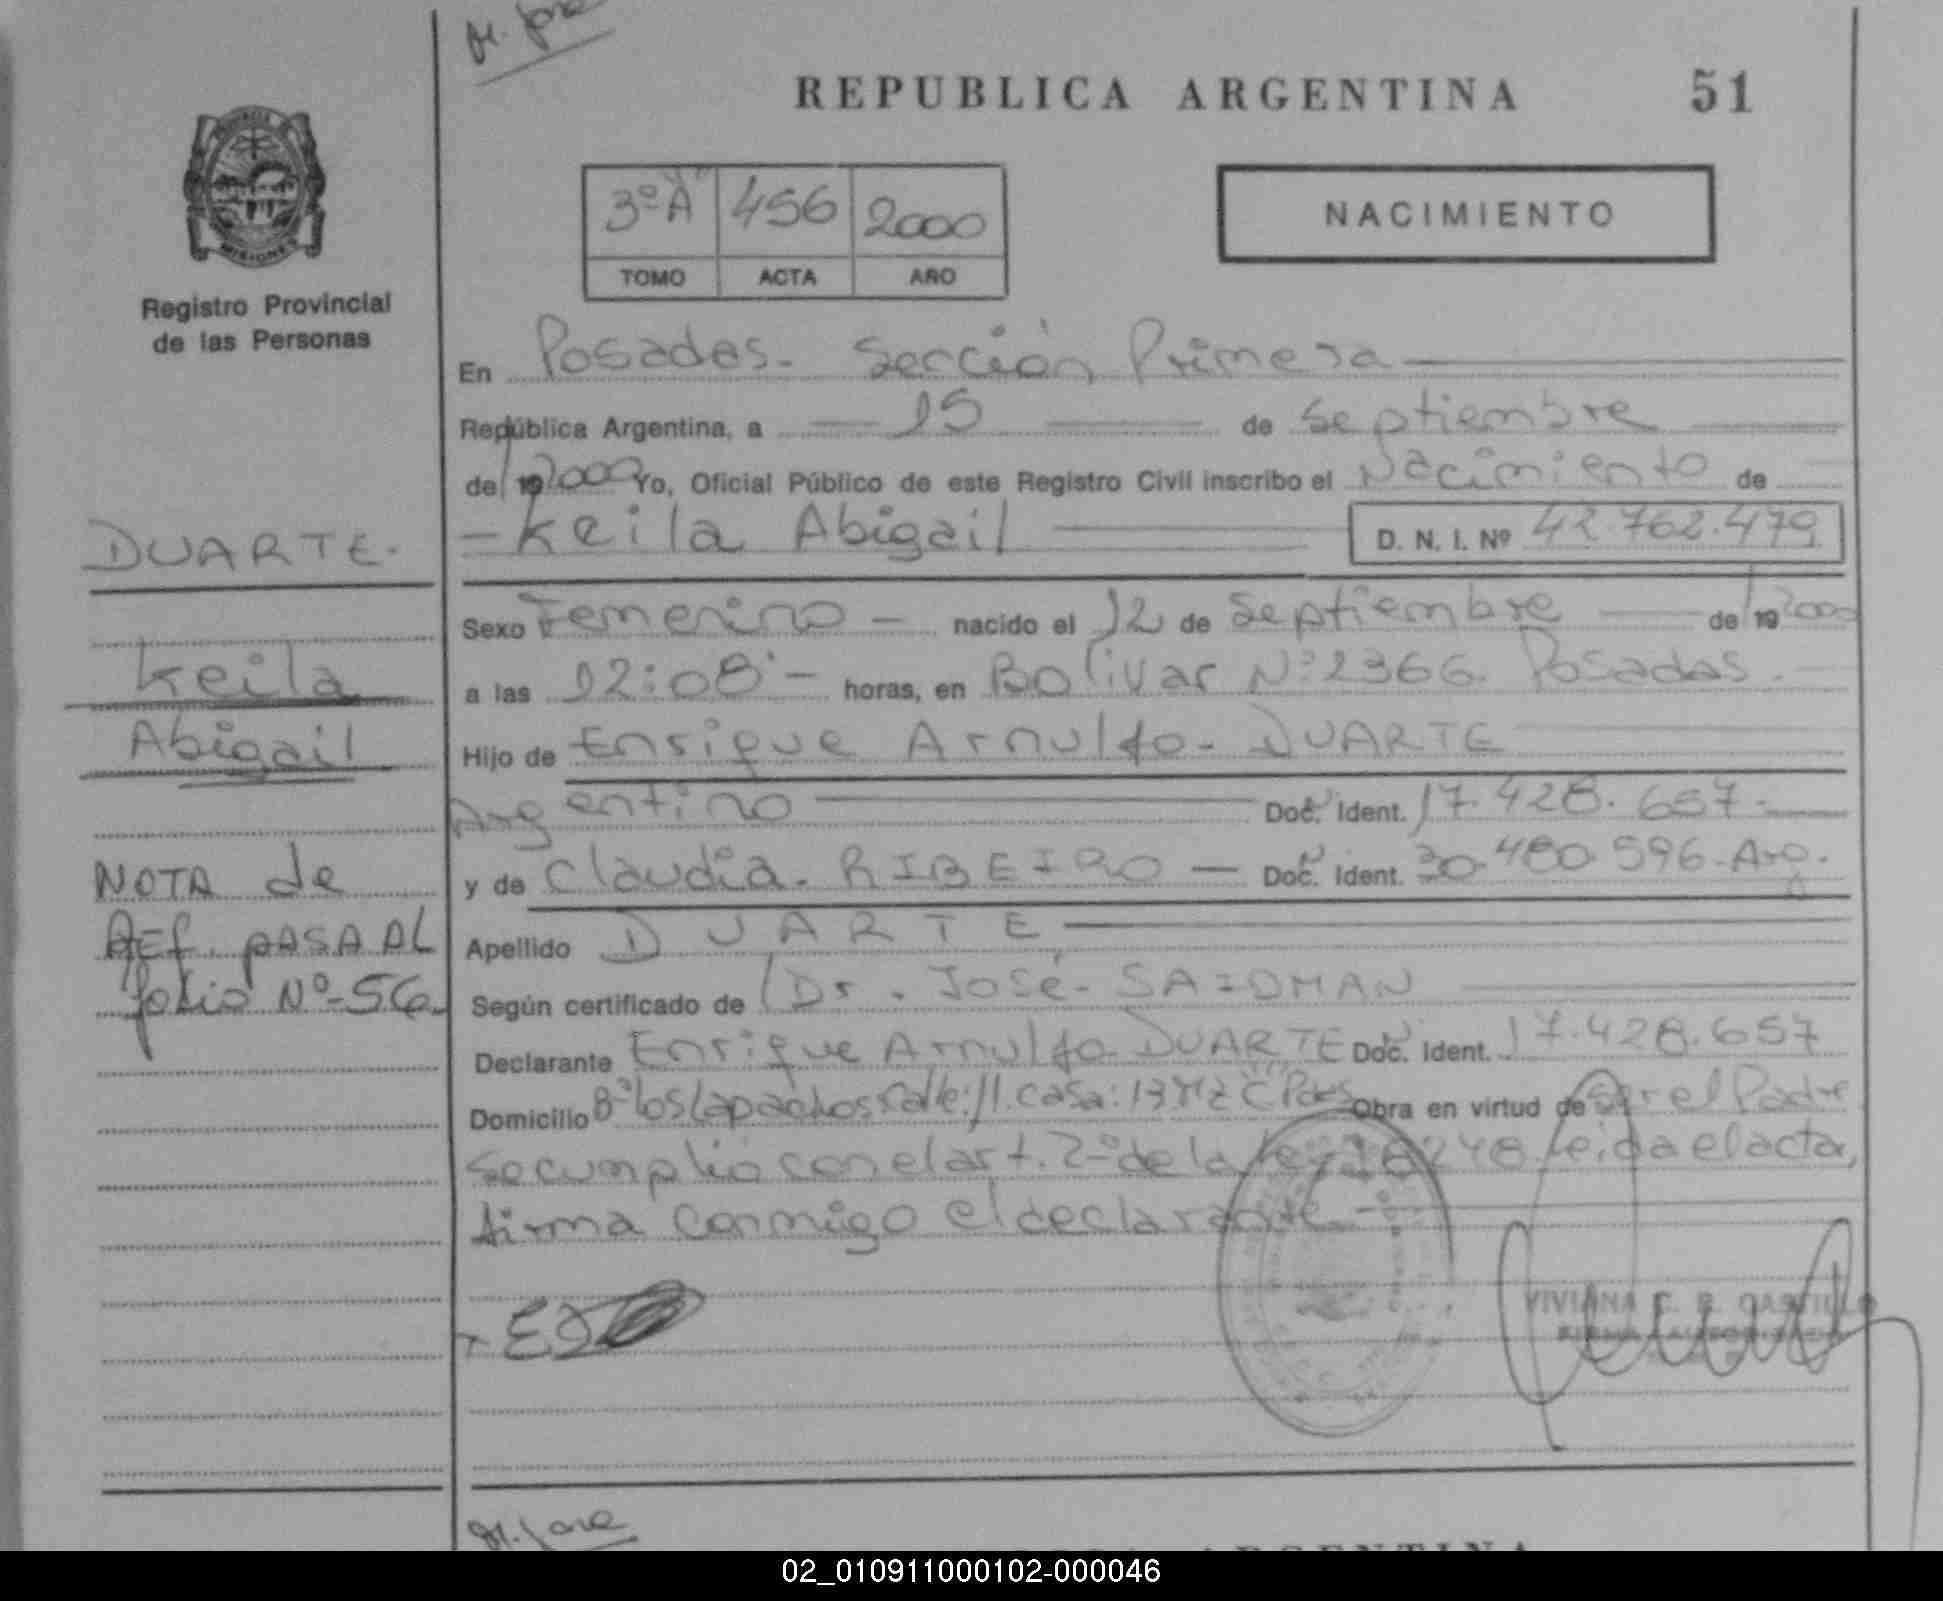 REPUBLICA ARGENTINA 51
PROVINCIA DE MISIONES
Registro Provincial
de las Personas
3º "A" 456 2000
TOMO ACTA AÑO
NACIMIENTO
En Posadas - Sección Primera
República Argentina, a 15 de Septiembre
de 19 2000 Yo, Oficial Público de este Registro Civil inscribo el Nacimiento de
- Keila Abigail D. N. I. Nº 42.762.479
DUARTE.
Keila
Abigail
Sexo Femenino - nacido el 12 de Septiembre de 19 2000
a las 12:08 - horas, en Bolivar Nº 2366. Posadas.
Hijo de Enrique Arnulfo - DUARTE
Argentino Doc. Ident. 17.428.657.-
y de Claudia. RIBEIRO - Doc. Ident. 30.480.596-Arg.
Apellido DUARTE
Según certificado de Dr. José SAIDMAN
Declarante Enrique Arnulfo DUARTE Doc. Ident. 17.428.657
Domicilio Bº los Lapachos Calle: 11. casa: 13 Mz "C" Obra en virtud de Ser el Padre
se cumplió con el art. 2º de la ley 18248 leida el acta,
firma conmigo el declarante -
NOTA de
REf. pASA AL
folio Nº-56.
VIVIANA C. R. CASTILLO
FIRMA AUTORIZADA
ARGENTINA
02_010911000102-000046